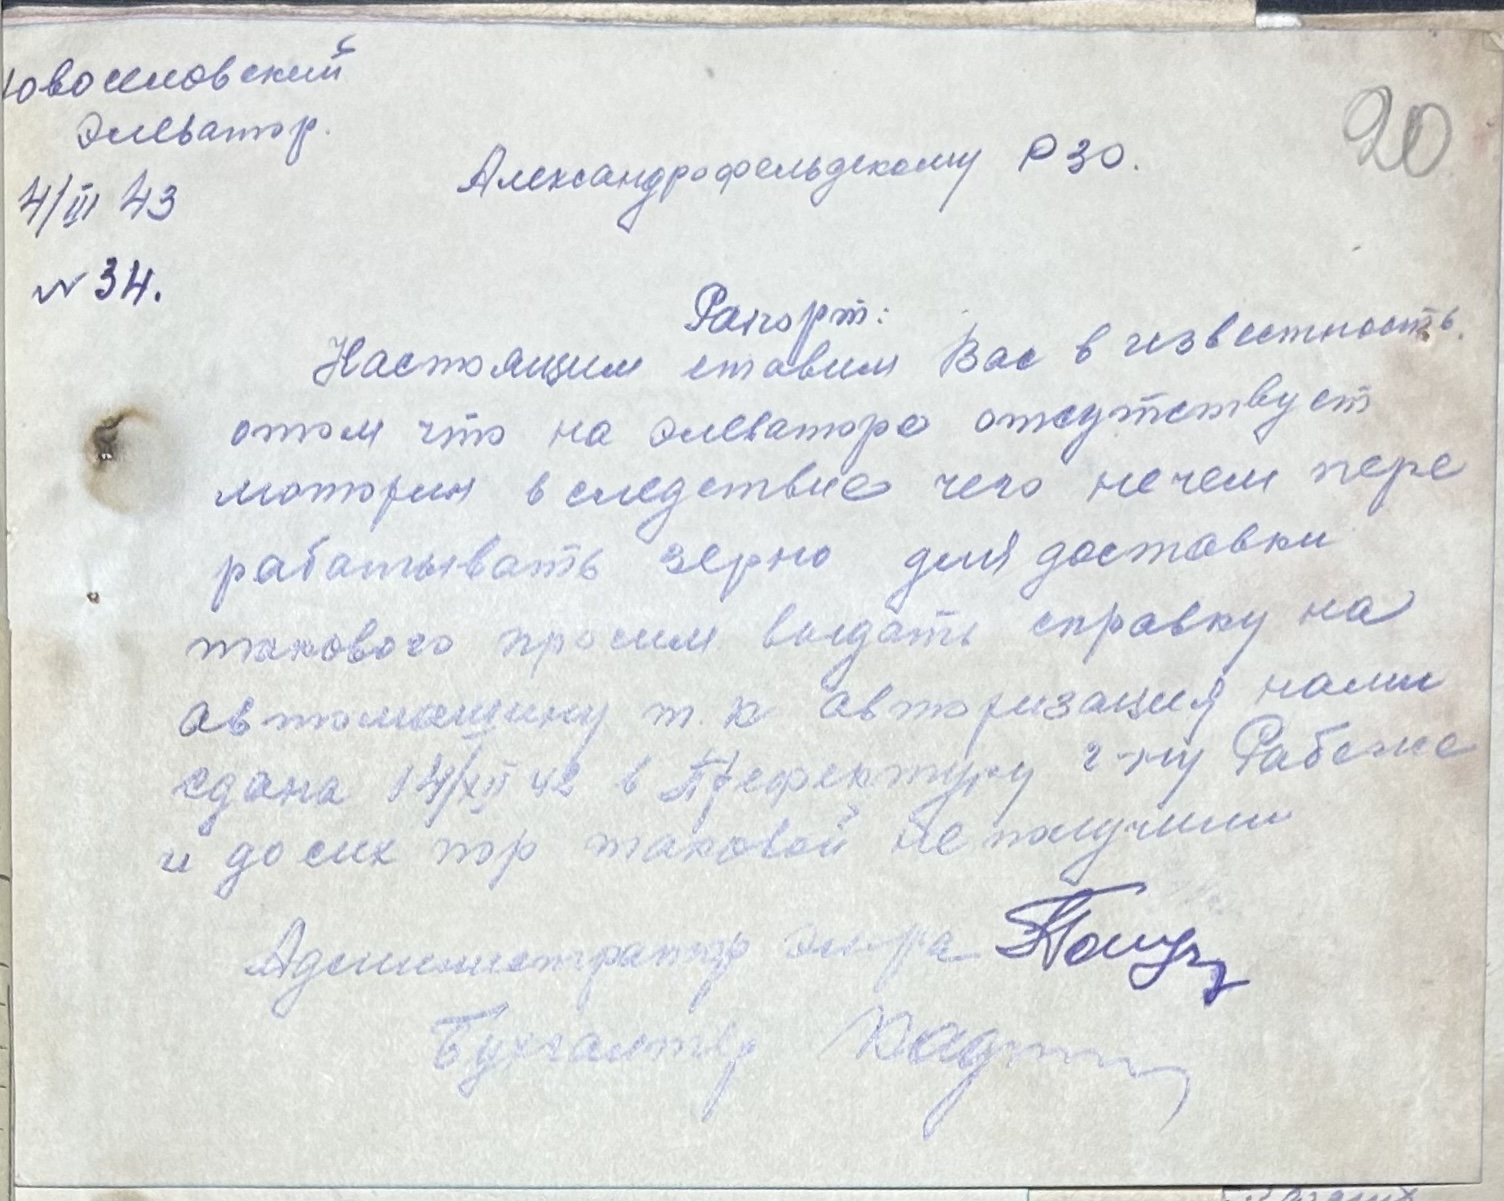 Новоселовский
Элеватор.
4/III 43
N 34.
20
Александрофельдскому РЗО.
Рапорт:
Настоящим ставим Вас в известность.
отом что на элеваторе отсутствует
моторин вследствие чего нечем пере
рабатывать зерно для доставки
такового просим выдать справку на
автомашину т.к авторизация нами
сдана 14/XII 42 в Префектуру г-ну Рабеже
и досих пор таковой неполучили
Администратор эл-ра
Бухгалтер